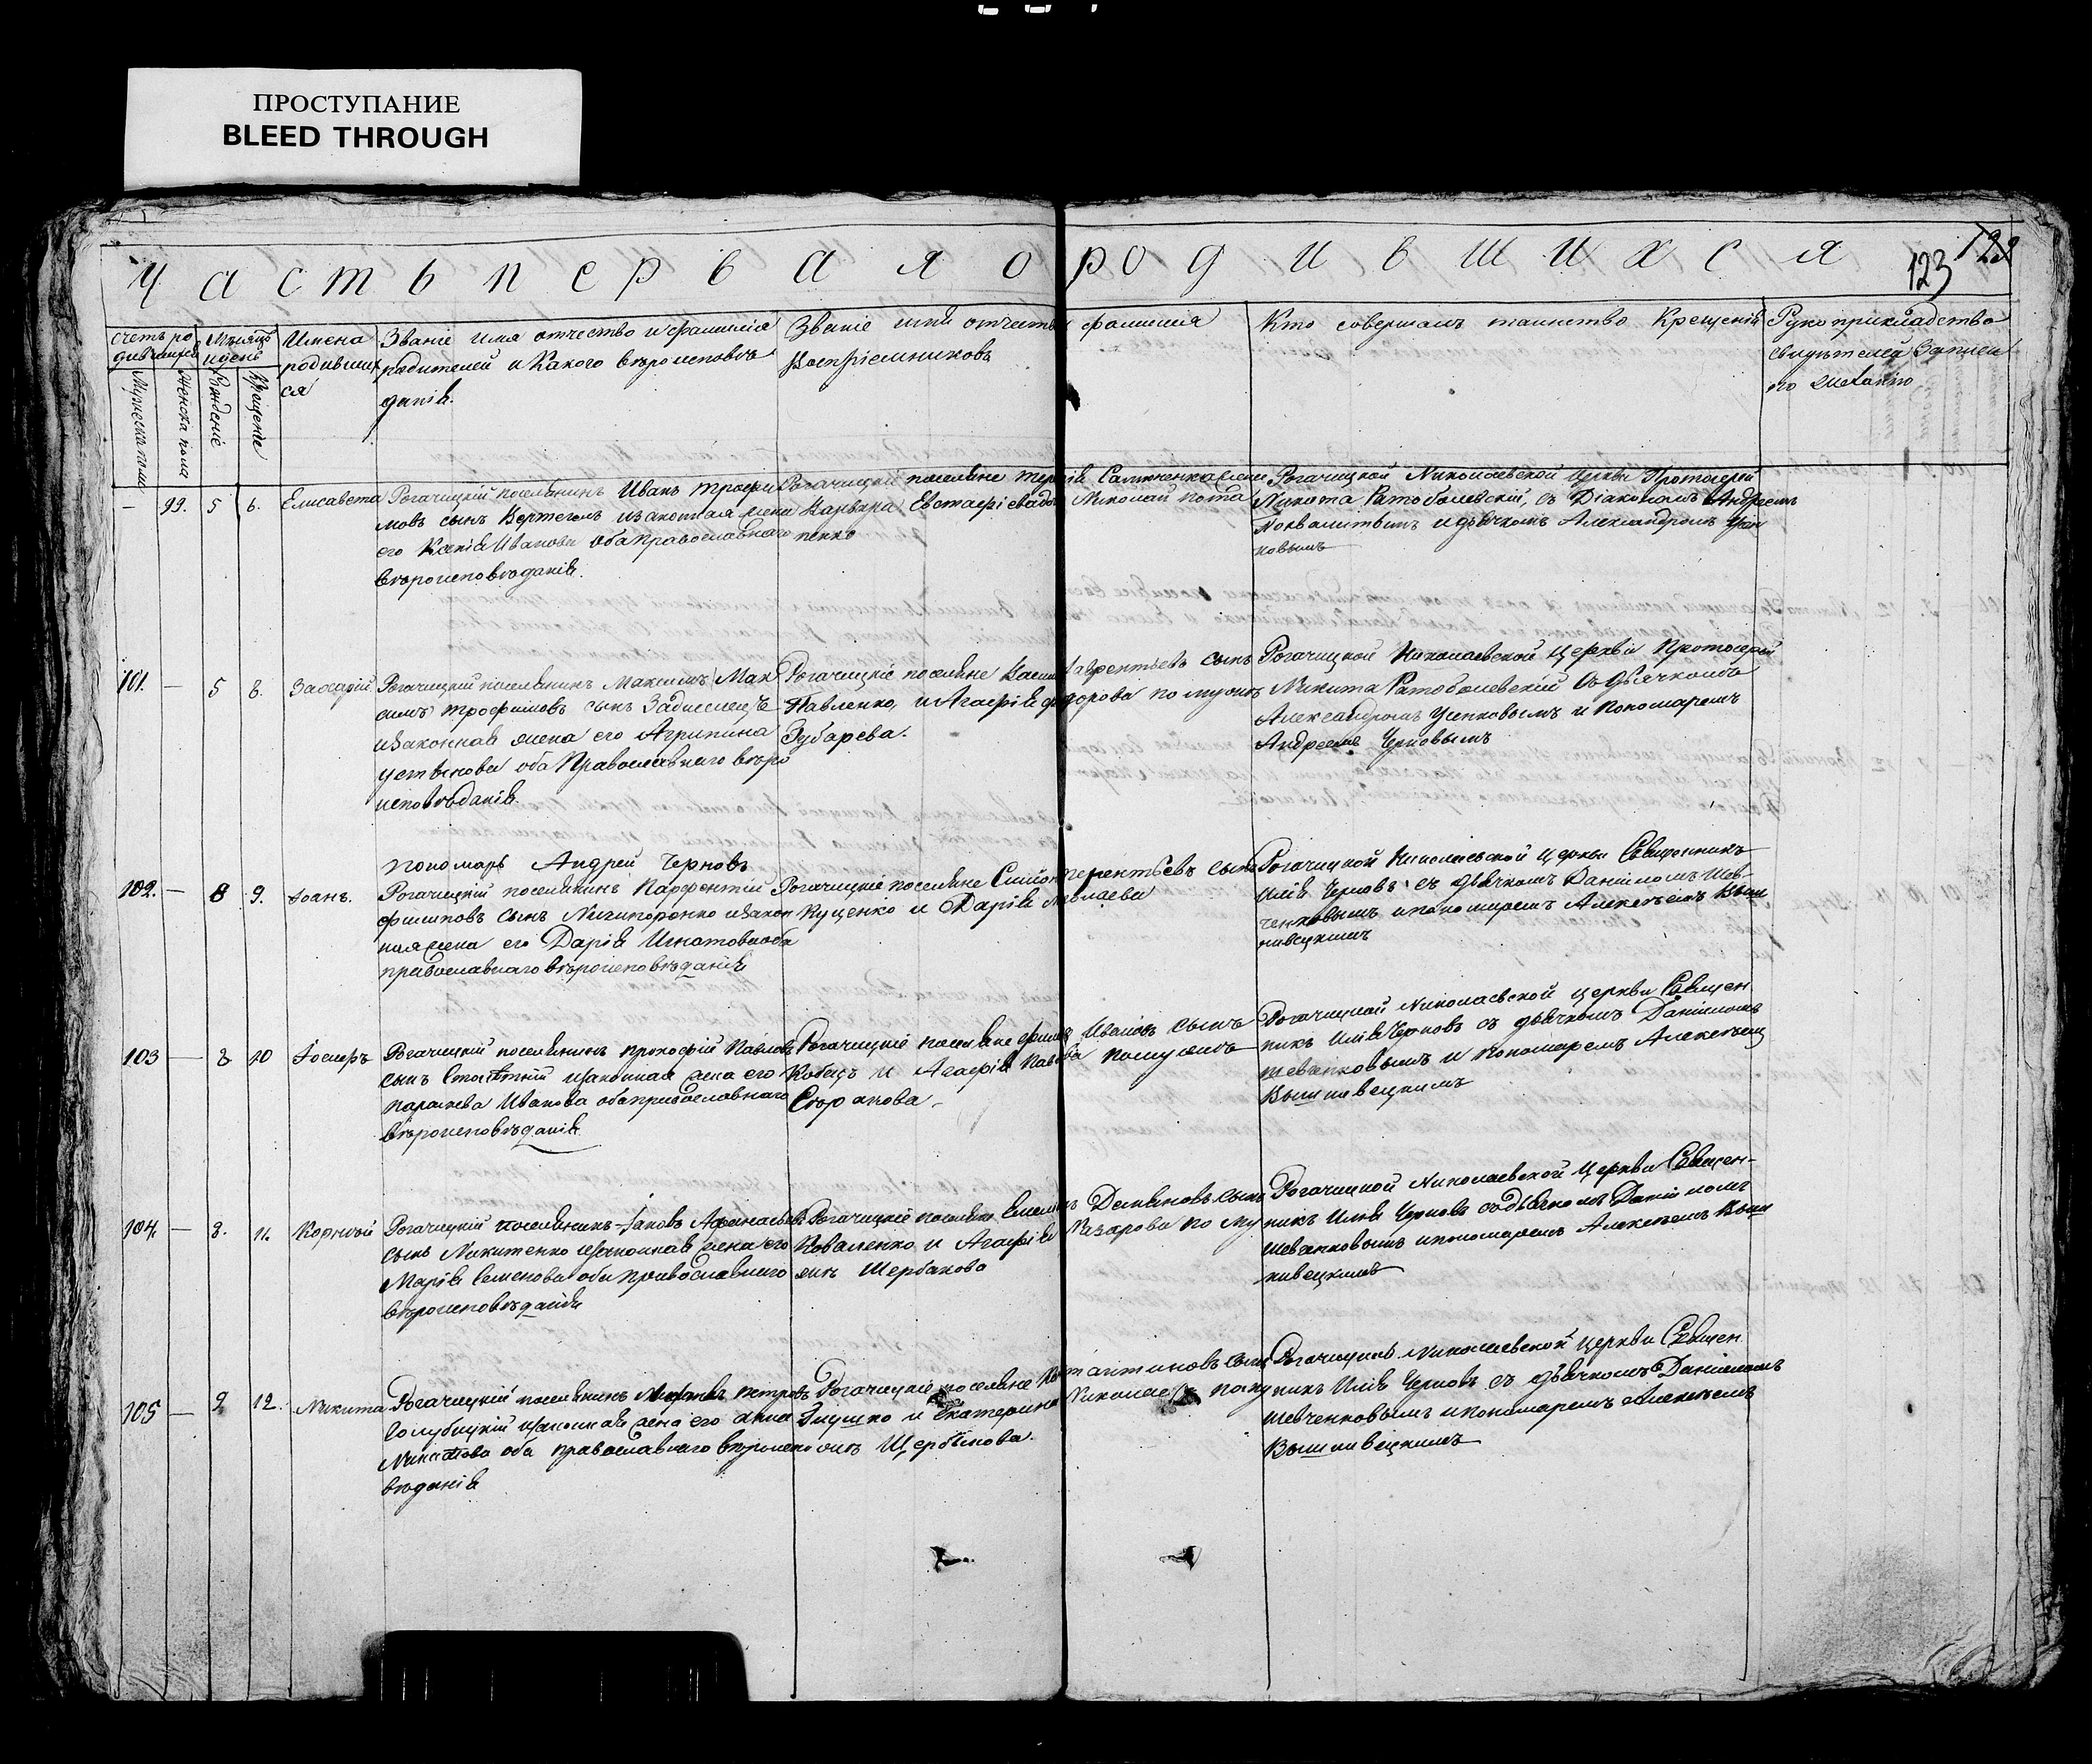 ПРОСТУПАНИЕ
BLEED THROUGH
Часть первая о родившихся
123
Счетъ родившихся
Мужеска пола
Женска пола
Мѣсяцъ и день
Рожденіе
Крещеніе
Имена родившихся
Званіе имя отчество и фамилія
родителей и какого вѣроисповѣ
данія.
Званіе имя отчество фамилия
воспріемниковъ
Кто совершалъ таинство Крещенія
Рукоприкладство
свидѣтелей записи
по желанію
— 99. 5 6. Елисавета
Рогачицкій поселянинъ Иванъ Трофи
мовъ сынъ Вертегелъ изаконная жена
его Ксенія Иванова оба православнаго
вѣроисповѣданія.
Рогачицкіи поселяне
Николай Пота
пенко
Рогачицкой Николаевской Церкви Протоіерей
Никита Ратоболевскій, съ Діакономъ Андреемъ
идьячкомъ Александромъ Усен
ковымъ
101. — 5 6.
Рогачицкій поселянинъ Максимъ Мак
симъ Трофимовъ сынъ
изаконная жена его Агрипина
Устинова оба Православнаго вѣро
исповѣданія.
Рогачицкіе поселяне Лаврентьевъ сынъ
Павленко, и Агафія Федорова по мужѣ
Зубарева.
Рогачицкой Николаевской Церкви Протоіерей
Никита Ратоболевскій Съ дьячкомъ
Александромъ Усенковымъ и Пономаремъ
Андреемъ Черновымъ
Пономарь Андрей Черновъ
102. — 8 9. Іоанъ.
Рогачицкій поселянинъ Парфентій
филиповъ сынъ Ничипоренко изакон
ная жена его Дарія Игнатова оба
православнаго вѣроисповѣданія
Рогачицкіе поселяне Терентьевъ сынъ
Куценко и Дарія
Рогачицкой Николаевской церкви Священникъ
Илія Черновъ съ дьячкомъ Даніиломъ Шев-
ченковымъ ипономаремъ Алексѣемъ Выш
нивецкимъ
103 — 8 10 Іосифъ
Рогачицкій поселянинъ Прокофій Павловъ
сынъ изаконная жена его
Параскева Иванова оба православнаго
вѣроисповѣданія
Рогачицкіе поселяне Ивановъ сынъ
Кобецъ и Агафія Павлова помужѣ
Рогачицкой Николаевской церкви Священ
никъ Илія Черновъ съ дьячкомъ Даніиломъ
Шевченковымъ и пономаремъ Алексѣемъ
Вышнивецкимъ
104. — 8. 11. Корнѣй
Рогачицкій поселянинъ Іаковъ Афанасьевъ
сынъ Никитенко изаконная жена его
Марія Семенова оба православнаго
вѣроисповѣданія
Рогачицкіе поселяне Демяновъ сынъ
Коваленко и Агафія Назарова по му
жѣ Щербакова
Рогачицкой Николаевской Церкви Священ-
никъ Илія Черновъ съдьячкомъ Даніиломъ
Шевченковымъ ипономаремъ Алексѣемъ Выш
нивецкимъ
105 — 9 12. Никита
Рогачицкій поселянинъ Петровъ
Голубицкій изаконная жена его Анна
оба православнаго вѣроиспо
вѣданія
Рогачицкіе поселяне Константиновъ сынъ
Глушко и Екатерина Николаева пому
жѣ Щербинова.
Рогачицкой Николаевской церкви Священ
никъ Илія Черновъ съ дьячкомъ Даніиломъ
Шевченковымъ ипономаремъ Алексѣемъ
Вышнивецкимъ